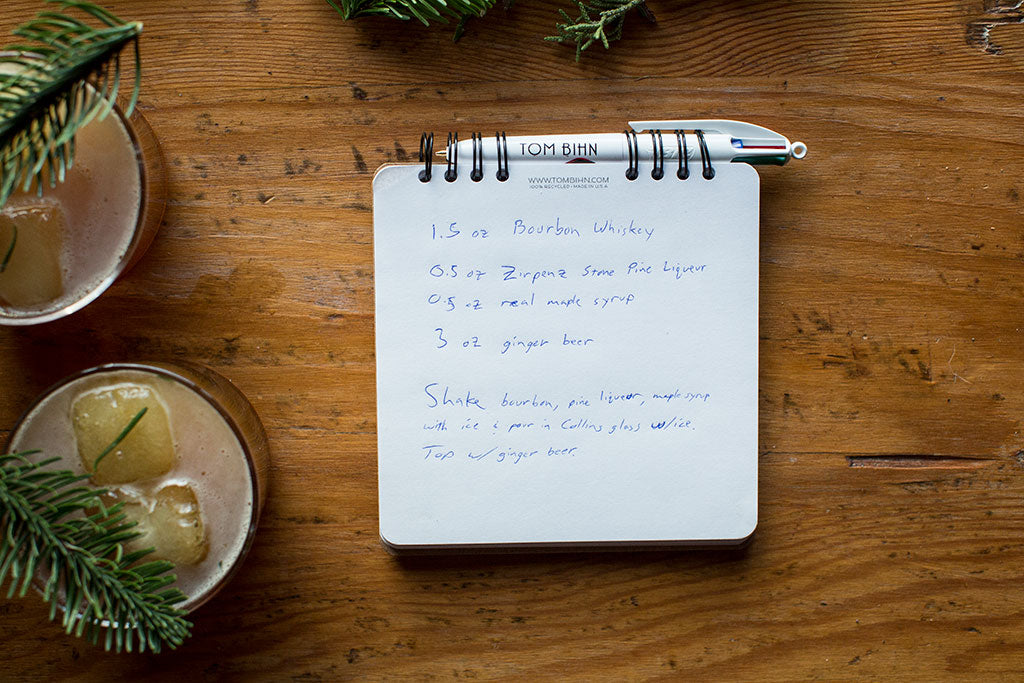 TOM BIHN
WWW.TOMBIHN.COM
100% RECYCLED • MADE IN U.S.A
1.5 oz Bourbon Whiskey
0.5 oz Zirpenz Stone Pine Liqueur
0.5 oz real maple syrup
3 oz ginger beer
Shake bourbon, pine liqueur, maple syrup
with ice & pour in Collins glass w/ice.
Top w/ ginger beer.